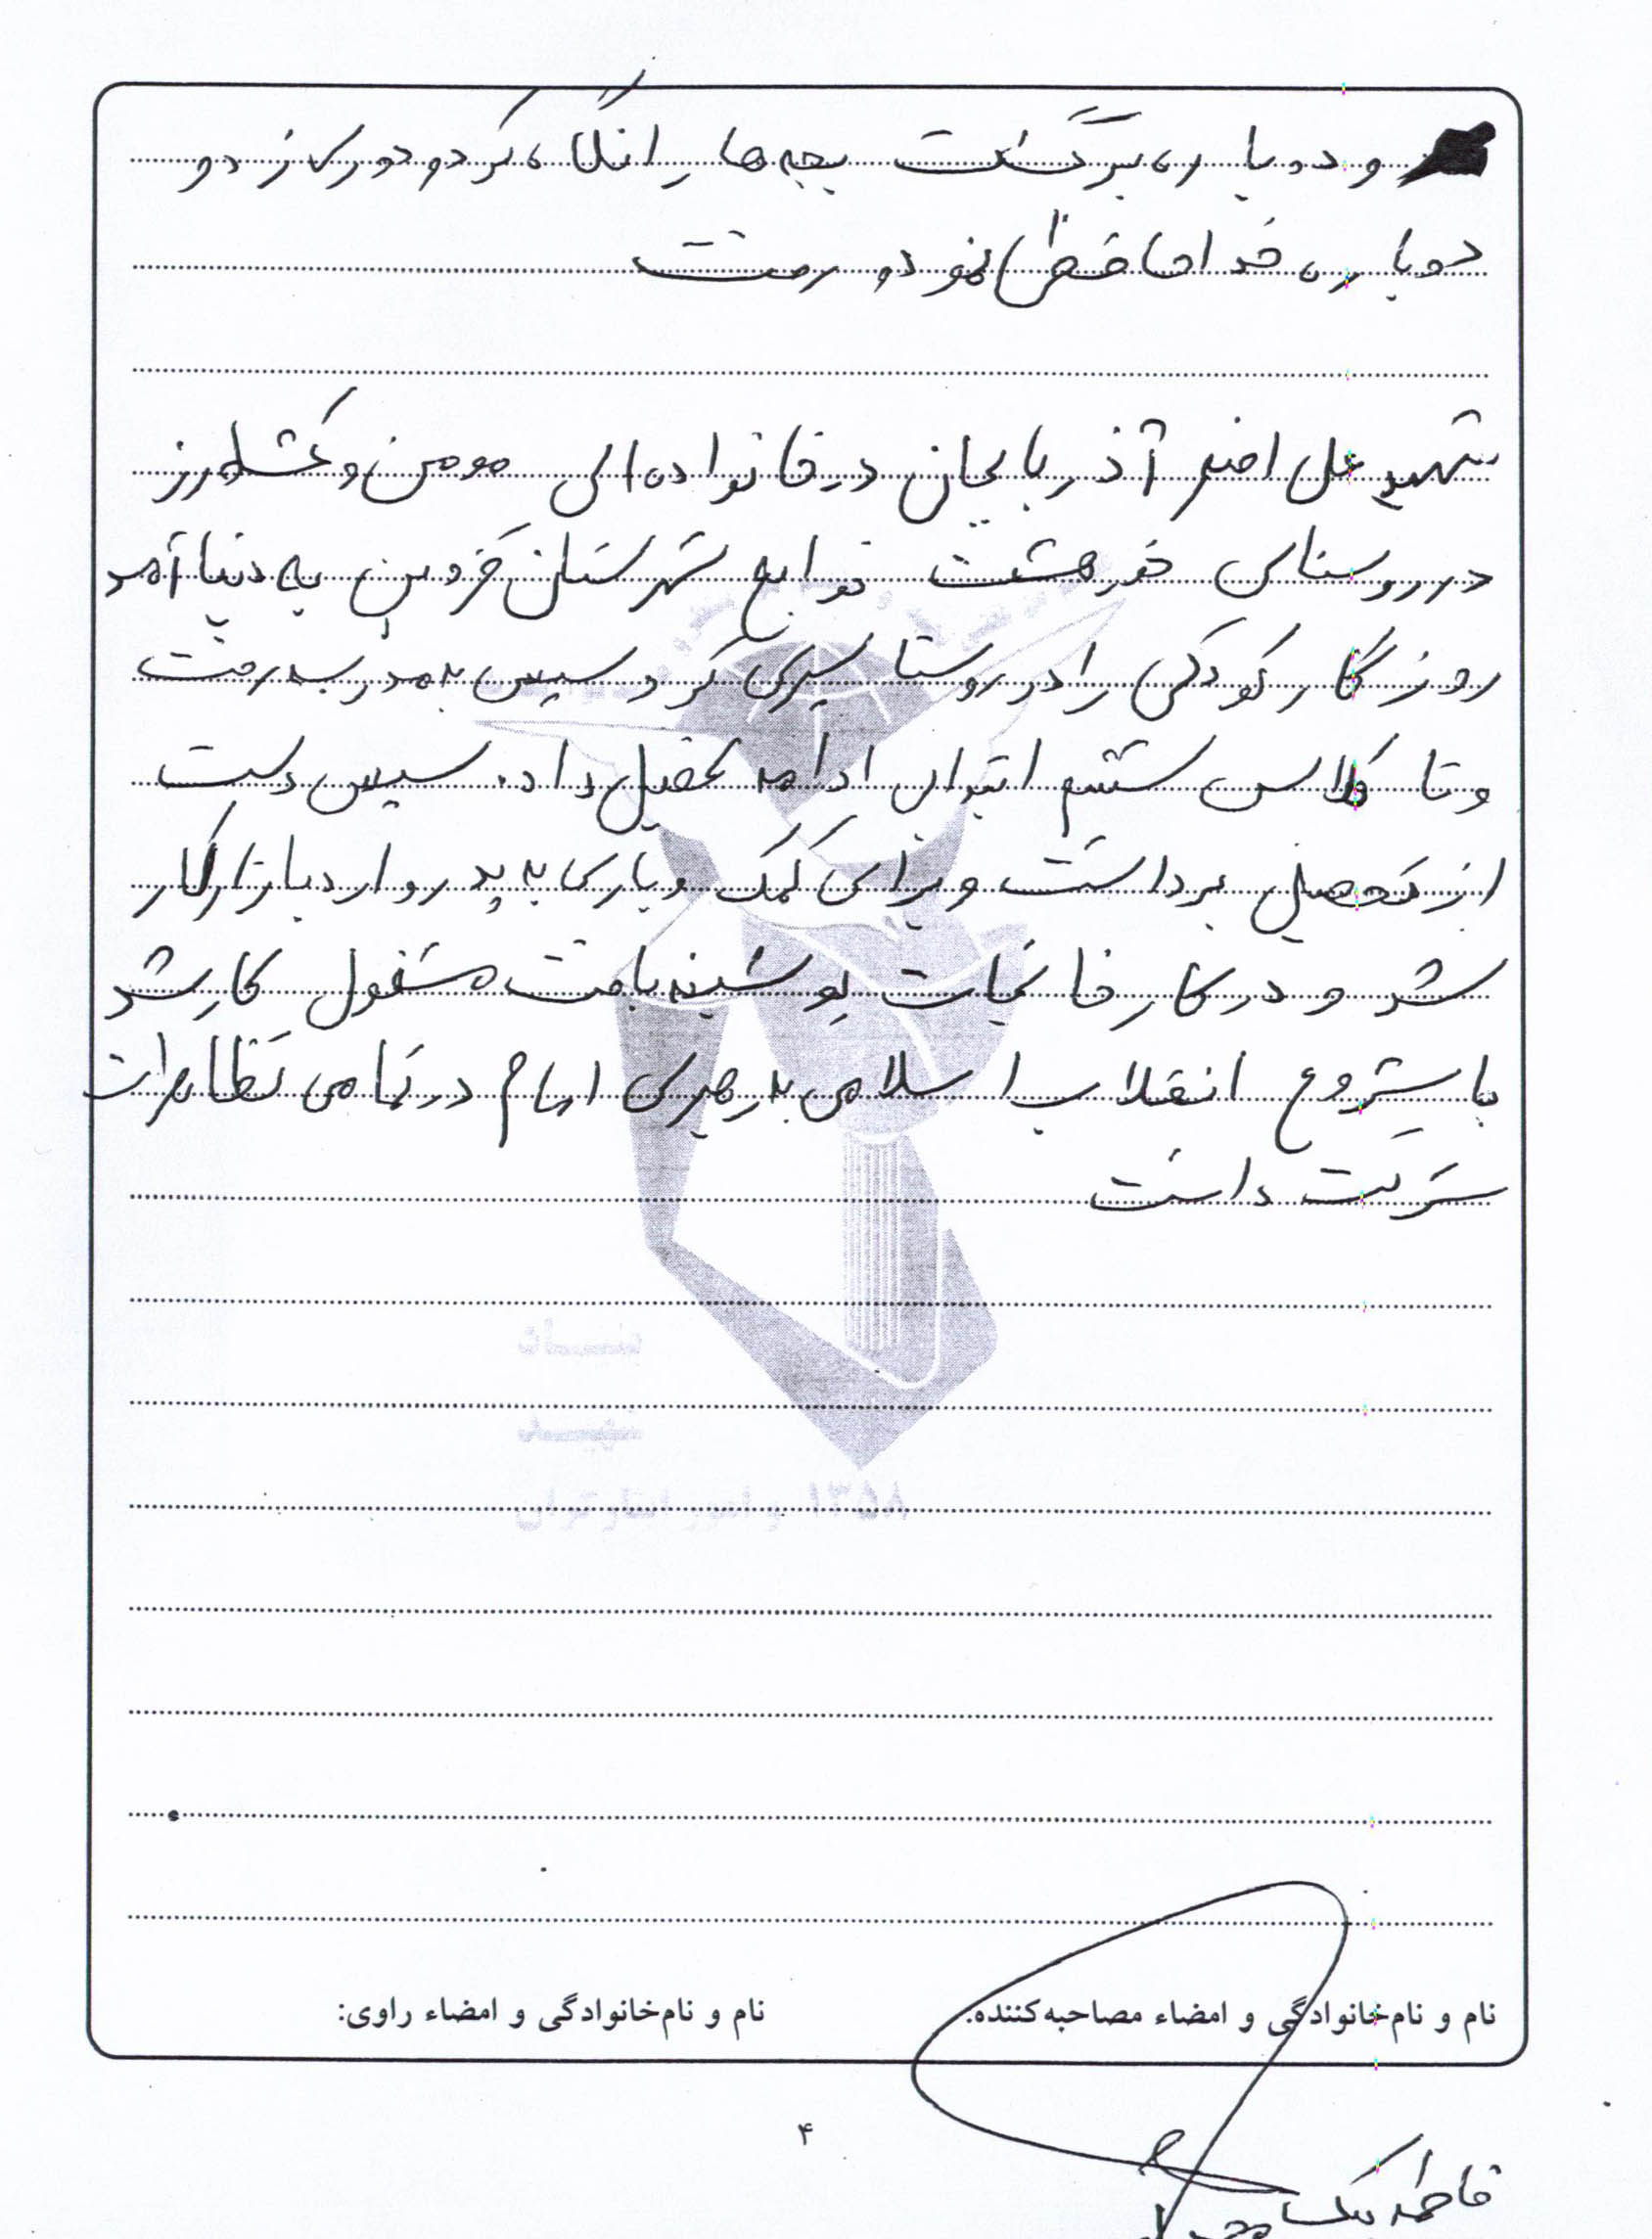 و دوباره برگشت بچه ها را نگاه کرد و دوری زد و
دوباره خداحافظی نمود و رفت
شهید علی اصغر آذربایجانی در خانواده ای مومن و کشاورز
در روستای خرهشت توابع شهرستان قزوین به دنیا آمد
روزگار کودکی را در روستا سپری کرد سپس به مدرسه رفت
و تا کلاس ششم ابتدایی ادامه تحصیل داد. سپس دست
از تحصیل برداشت و برای کمک و یاری به پدر وارد بازار کار
شد و در کارخانجات پوشینه بافت مشغول کار شد
با شروع انقلاب اسلامی به رهبری امام در تمامی تظاهرات
شرکت داشت
بنیاد
شهید
و امور ایثارگران ۱۳۵۸
نام و نام‌خانوادگی و امضاء مصاحبه‌کننده: نام و نام‌خانوادگی و امضاء راوی:
۴
فاطمه بیک